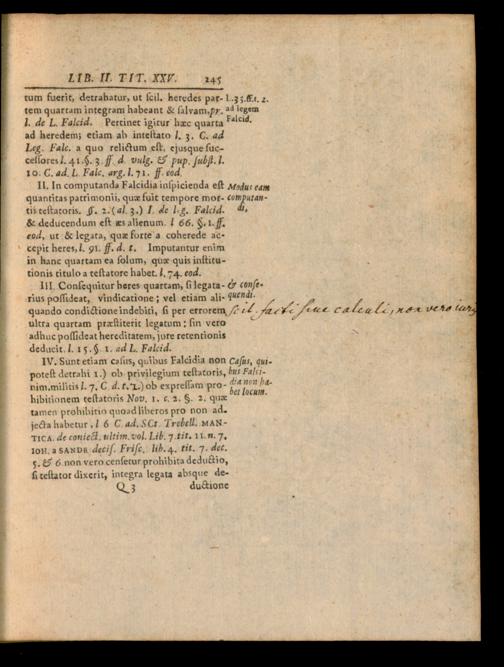 LIB. II. TIT. XXV. 245
tum fuerit, detrahatur, ut scil. heredes par-
tem quartam integram habeant & salvam, pr.
l. de L. Falcid. Pertinet igitur hæc quarta
ad heredem; etiam ab intestato l. 3. C. ad
Leg. Falc. a quo relictum est, ejusque suc-
cessores l. 41. §. 3. ff. d. vulg. & pup. subst. l.
10. C. ad. L. Falc. arg. l. 71. ff. eod.
L. 35. ff. t. 2.
ad legem
Falcid.
II. In computanda Falcidia inspicienda est
quantitas patrimonii, quæ fuit tempore mor-
tis testatoris. §. 2. (al. 3.) I. de leg. Falcid.
& deducendum est æs alienum. l 66. §. 1. ff.
eod, ut & legata, quæ forte a coherede ac-
cepit heres, l. 91. ff. d. t. Imputantur enim
in hanc quartam ea solum, quæ quis institu-
tionis titulo a testatore habet. l. 74. eod.
Modus eam
computan-
di,
III. Consequitur heres quartam, si legata-
rius possideat, vindicatione; vel etiam ali-
quando condictione indebiti, si per errorem
ultra quartam præstiterit legatum; sin vero
adhuc possideat hereditatem, jure retentionis
deducit. l. 15. §. 1. ad L. Falcid.
& conse-
quendi.
scil. facti sive calculi, non vero iuris
IV. Sunt etiam casus, quibus Falcidia non
potest detrahi 1.) ob privilegium testatoris,
nim. militis l. 7. C. d. t. 2.) ob expressam pro-
hibitionem testatoris Nov. 1. c. 2. §. 2. quæ
tamen prohibitio quoad liberos pro non ad-
jecta habetur. l 6 C. ad. SCt. Trebell. MAN-
TICA. de coniect. ultim. vol. Lib. 7. tit. 11. n. 7.
IOH. a SANDE decis. Frisc. lib. 4. tit. 7. dec.
5. & 6. non vero censetur prohibita deductio,
si testator dixerit, integra legata absque de-
Casus, qui-
bus Falci-
dia non ha-
bet locum.
Q 3 ductione